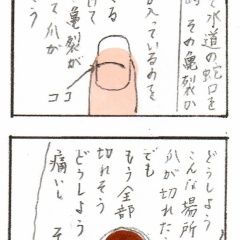 て水道の蛇口を
その亀裂が
が入っているのを
亀裂が
て爪が
う
ココ
どうしよう
こんな場所
爪が切れた
でも
もう全部
切れそう
どうしよう
痛いし